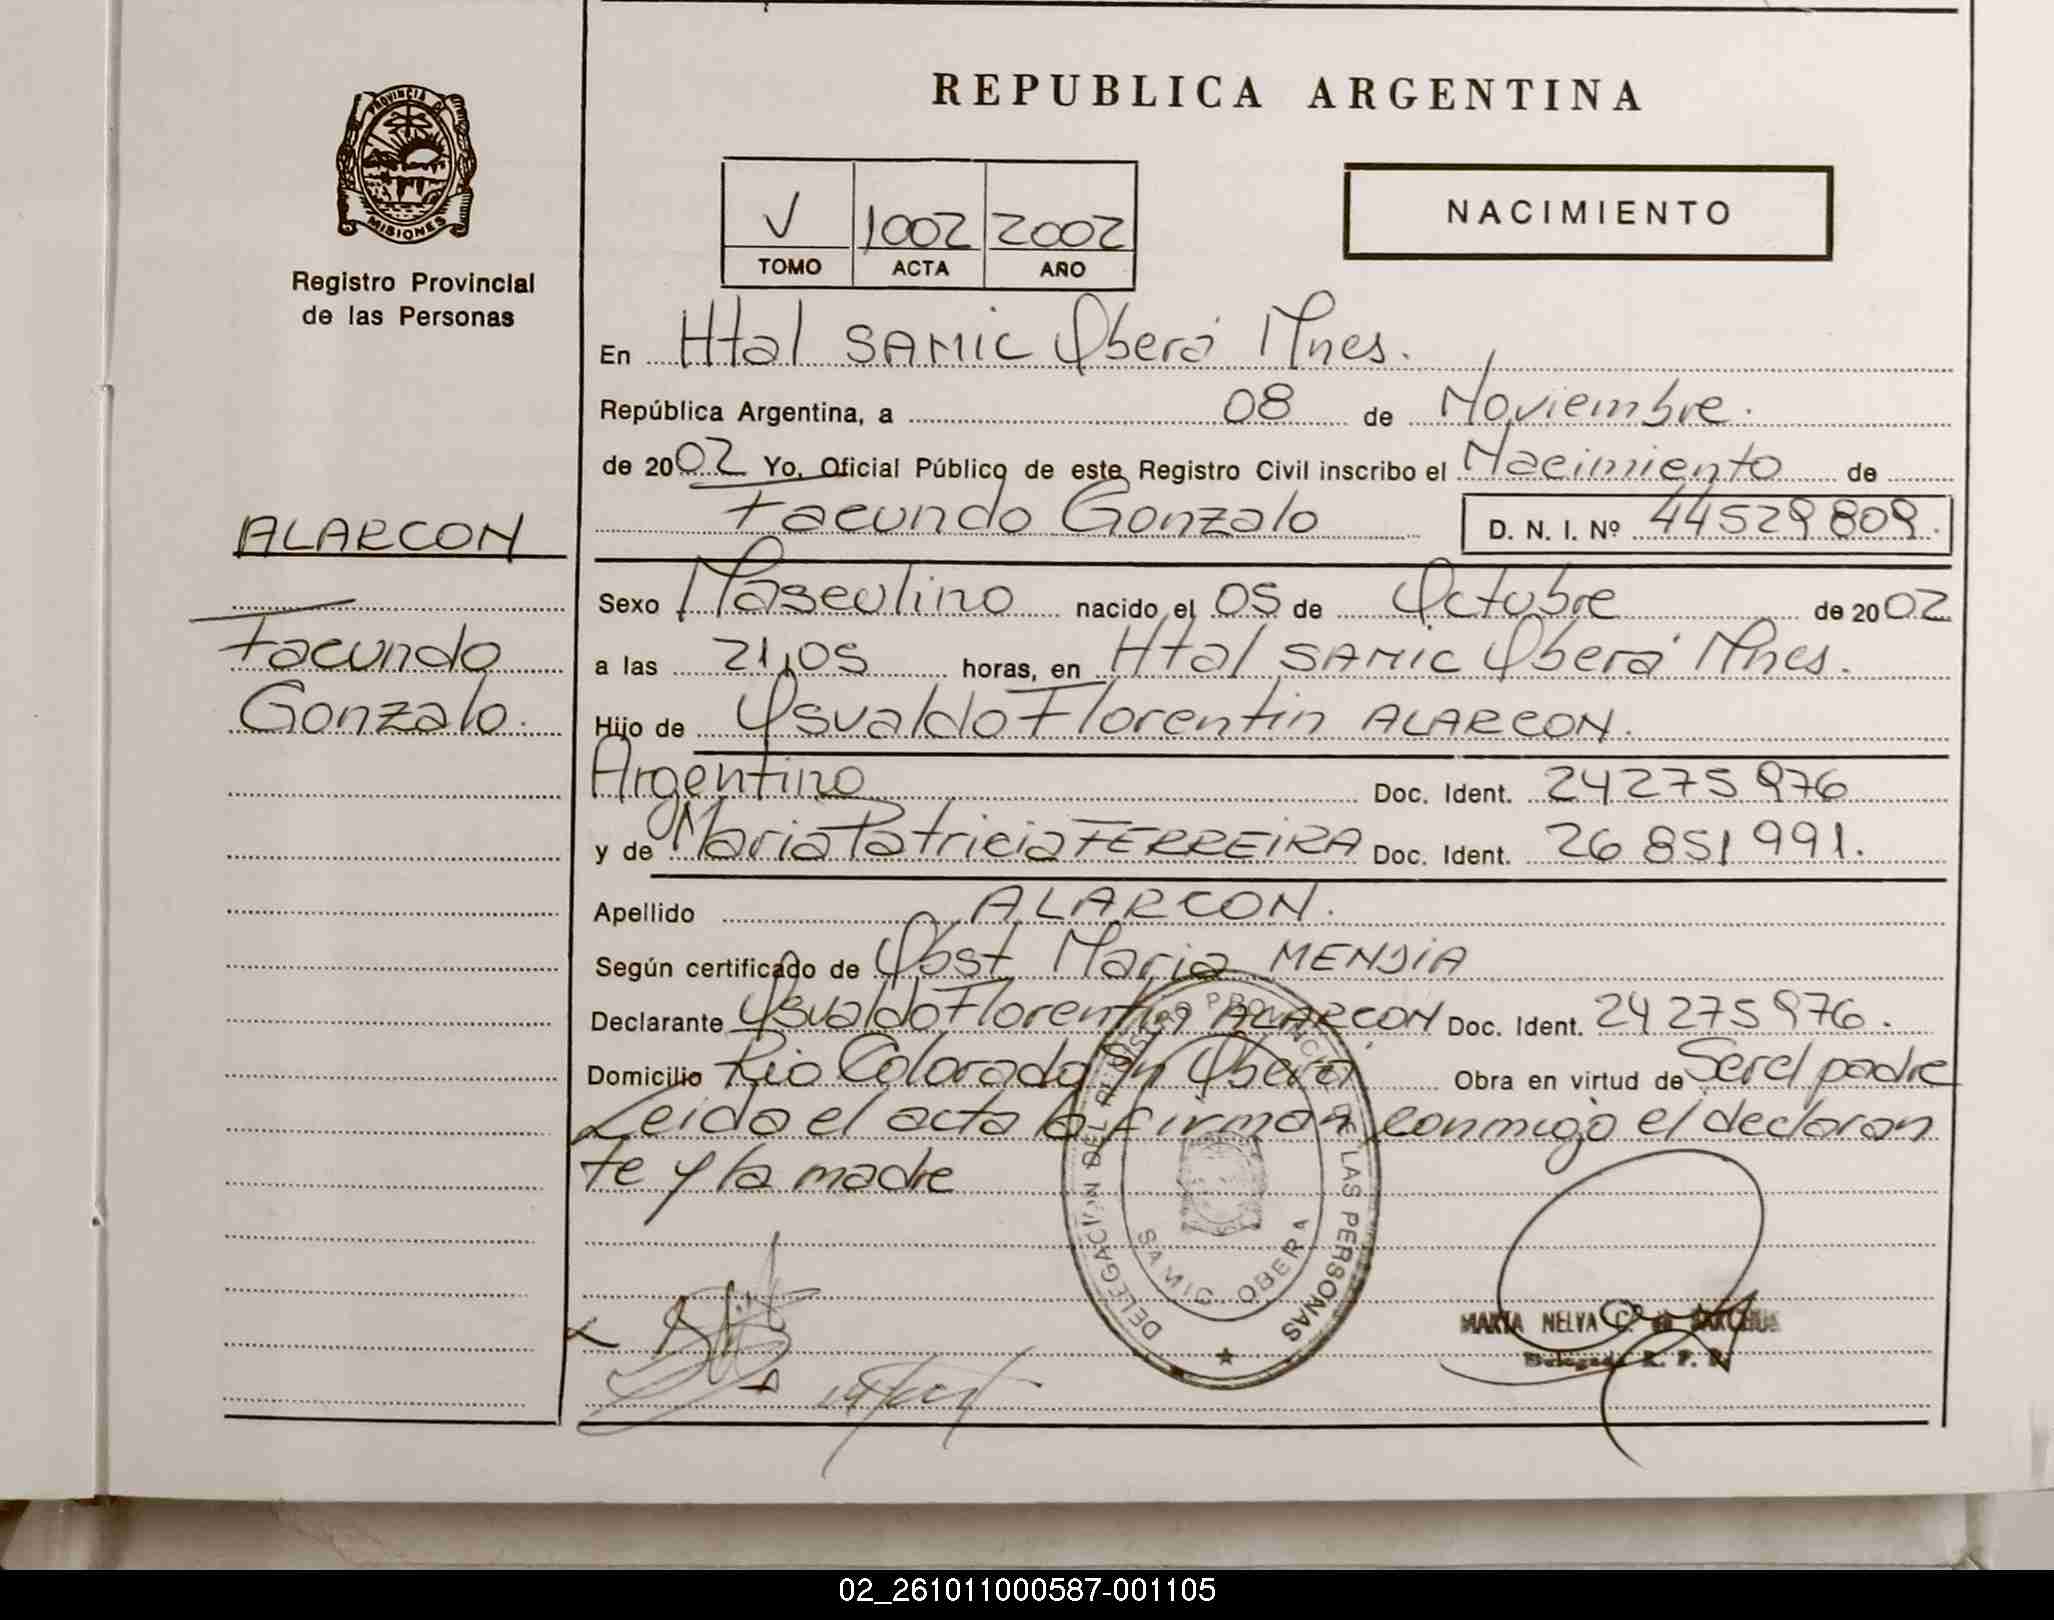 REPUBLICA ARGENTINA
PROVINCIA DE
MISIONES
Registro Provincial
de las Personas
V 1002 2002
TOMO ACTA AÑO
NACIMIENTO
En Htal SAMIC Oberá Mnes.
República Argentina, a 08 de Noviembre.
de 2002 Yo, Oficial Público de este Registro Civil inscribo el Nacimiento de
Facundo Gonzalo D. N. I. Nº 44529809.
ALARCON
Facundo
Gonzalo.
Sexo Masculino nacido el 05 de Octubre de 2002
a las 21,05 horas, en Htal SAMIC Oberá Mnes.
Hijo de Osvaldo Florentin ALARCON.
Argentino Doc. Ident. 24275976
y de Maria Patricia FERREIRA Doc. Ident. 26851991.
Apellido ALARCON.
Según certificado de Obst Maria MENDIA
Declarante Osvaldo Florentin ALARCON Doc. Ident. 24275976.
Domicilio Rio Colorado Oberá Obra en virtud de Ser el padre
Leida el acta la firman conmigo el declaran
te y la madre
DELEGACION DEL REGISTRO PROVINCIAL DE LAS PERSONAS
SAMIC OBERA
MARTA NELVA C. de
Delegada R. P. P.
02_261011000587-001105